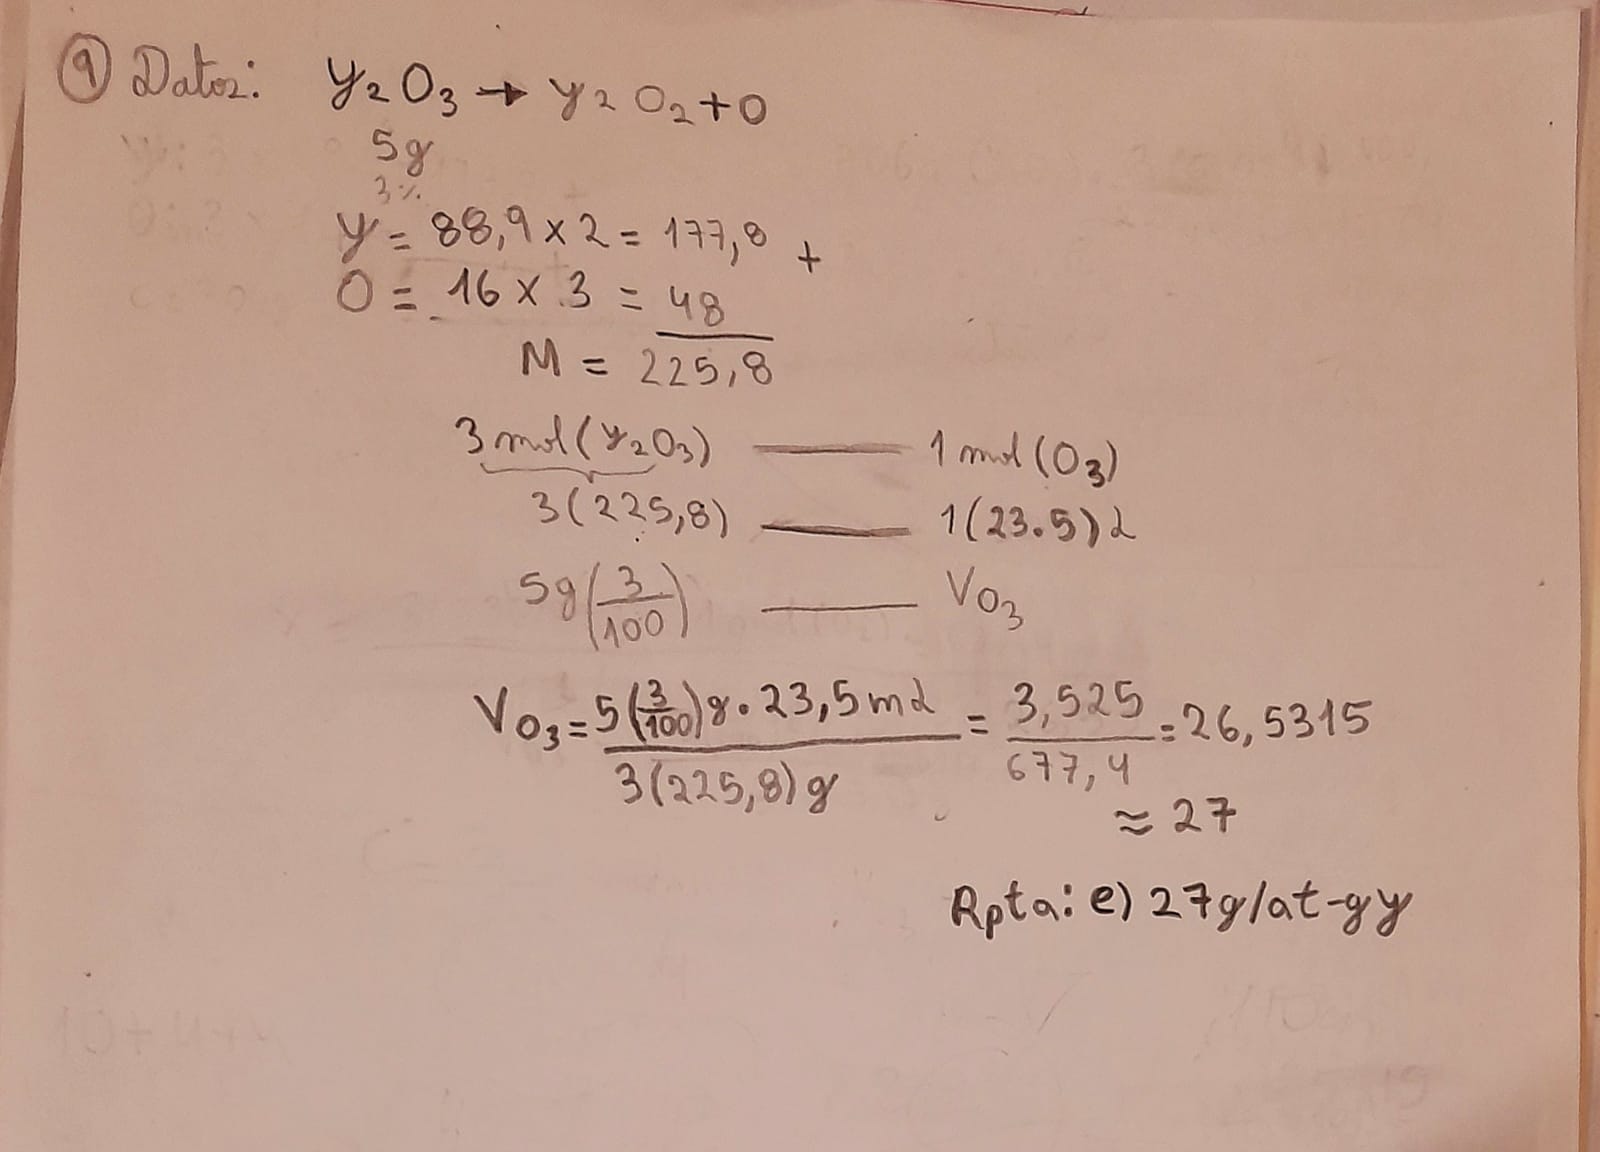 9 Datos: Y₂O₃ → Y₂O₂ + O
5g
3%
Y = 88,9 x 2 = 177,8 +
O = 16 x 3 = 48
M = 225,8
3 mol (Y₂O₃) — 1 mol (O₃)
3(225,8) — 1(23.5)L
5g(3/100) — VO₃
VO₃ = 5(3/100)g • 23,5 mL / 3(225,8)g = 3,525 / 677,4 = 26,5315
≈ 27
Rpta: e) 27g/at-g y